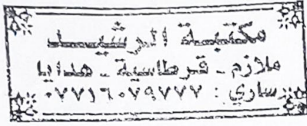 مكتبة الرشيد
ملازم - قرطاسية - هدايا
ساري : ٠٧٧١٦٠٧٩٧٧٧